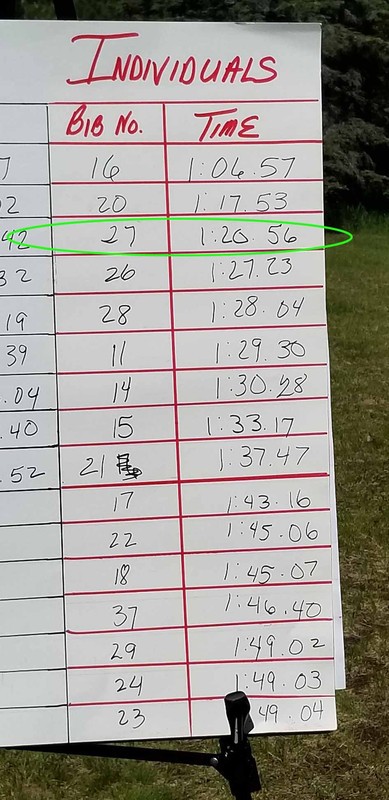 INDIVIDUALS
BIB NO. TIME
7 16 1:06.57
2 20 1:17.53
42 27 1:20.56
32 26 1:27.23
19 28 1:28.04
39 11 1:29.30
.04 14 1:30.28
.40 15 1:33.17
.52 21 1:37.47
17 1:43.16
22 1:45.06
18 1:45.07
37 1:46.40
29 1:49.02
24 1:49.03
23 49.04